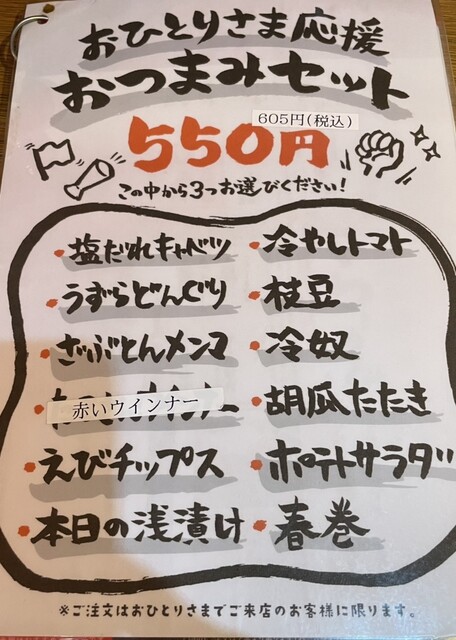 おひとりさま応援
おつまみセット
550円
605円(税込)
この中から3つお選びください!
・塩だれキャベツ
・冷やしトマト
・うずらどんぐり
・枝豆
・ざぶとんメンマ
・冷奴
・赤いウインナー
・胡瓜たたき
・えびチップス
・ポテトサラダ
・本日の浅漬け
・春巻
※ご注文はおひとりさまでご来店のお客様に限ります。